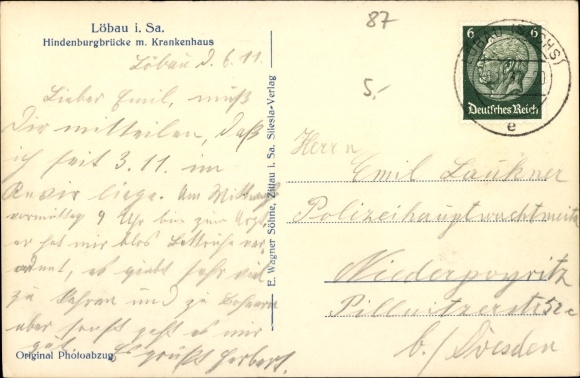 Löbau i. Sa.
Hindenburgbrücke m. Krankenhaus
87
5,-
Löbau d. 6.11.
Lieber Emil, muß
Dir mitteilen, daß
ich seit 3.11. im
Revier liege. Am
vormittag 9 Uhr bin zum Arzt,
er hat mir blos Bettruhe ver
ordnet, es giebt sehr viel
zu und zu
aber sonst geht es mir
gut. Es grüßt Herbert.
Original Photoabzug
E. Wagner Söhne, Zittau i. Sa. Silesia-Verlag
6 6
Deutsches Reich
LÖBAU (SACHS)
e
Herrn
Emil Laukner
Polizeihauptwachtmeister
Niederpoyritz
Pillnitzerstr. 52c
b/ Dresden